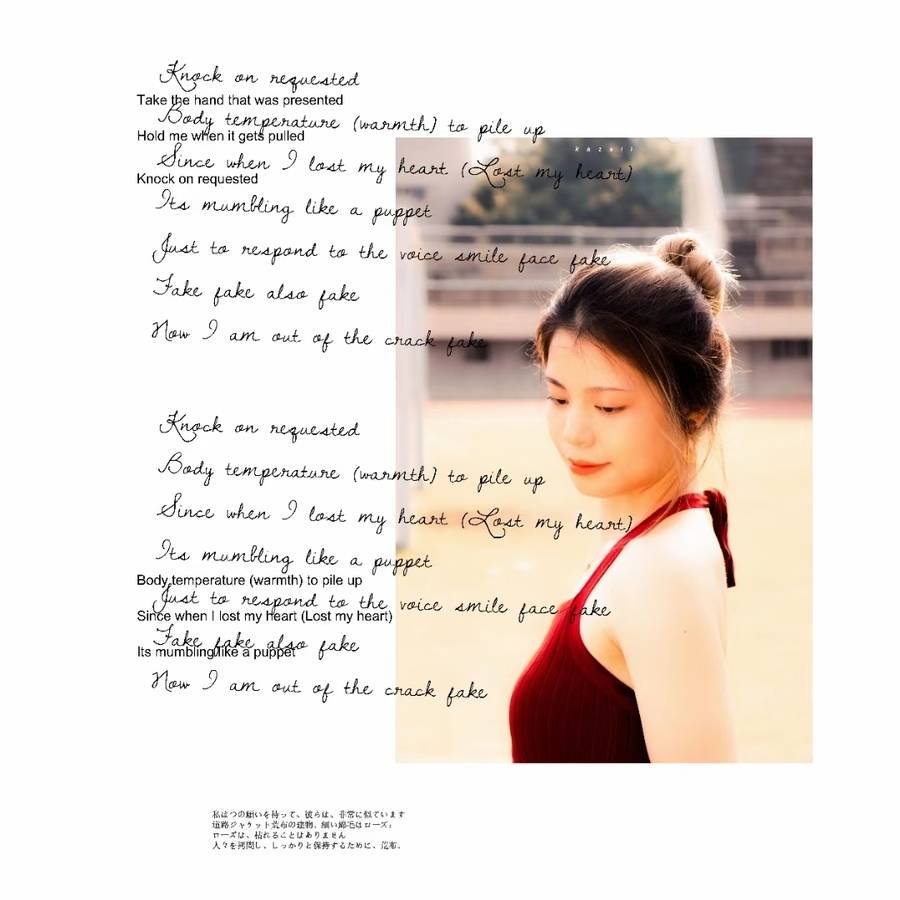 Knock on requested
Take the hand that was presented
Body temperature (warmth) to pile up
Hold me when it gets pulled
kazeii
Since when I lost my heart (Lost my heart)
Knock on requested
Its mumbling like a puppet
Just to respond to the voice smile face fake
Fake fake also fake
Now I am out of the crack fake
Knock on requested
Body temperature (warmth) to pile up
Since when I lost my heart (Lost my heart)
Its mumbling like a puppet
Body temperature (warmth) to pile up
Just to respond to the voice smile face fake
Since when I lost my heart (Lost my heart)
Fake fake also fake
Its mumbling like a puppet
Now I am out of the crack fake
私はつの願いを持って、彼らは、非常に似ています
道路ジャケット荒布の建物、細い綿毛はローズ;
ローズは、枯れることはありません
人々を拷問し、しっかりと保持するために、荒布。